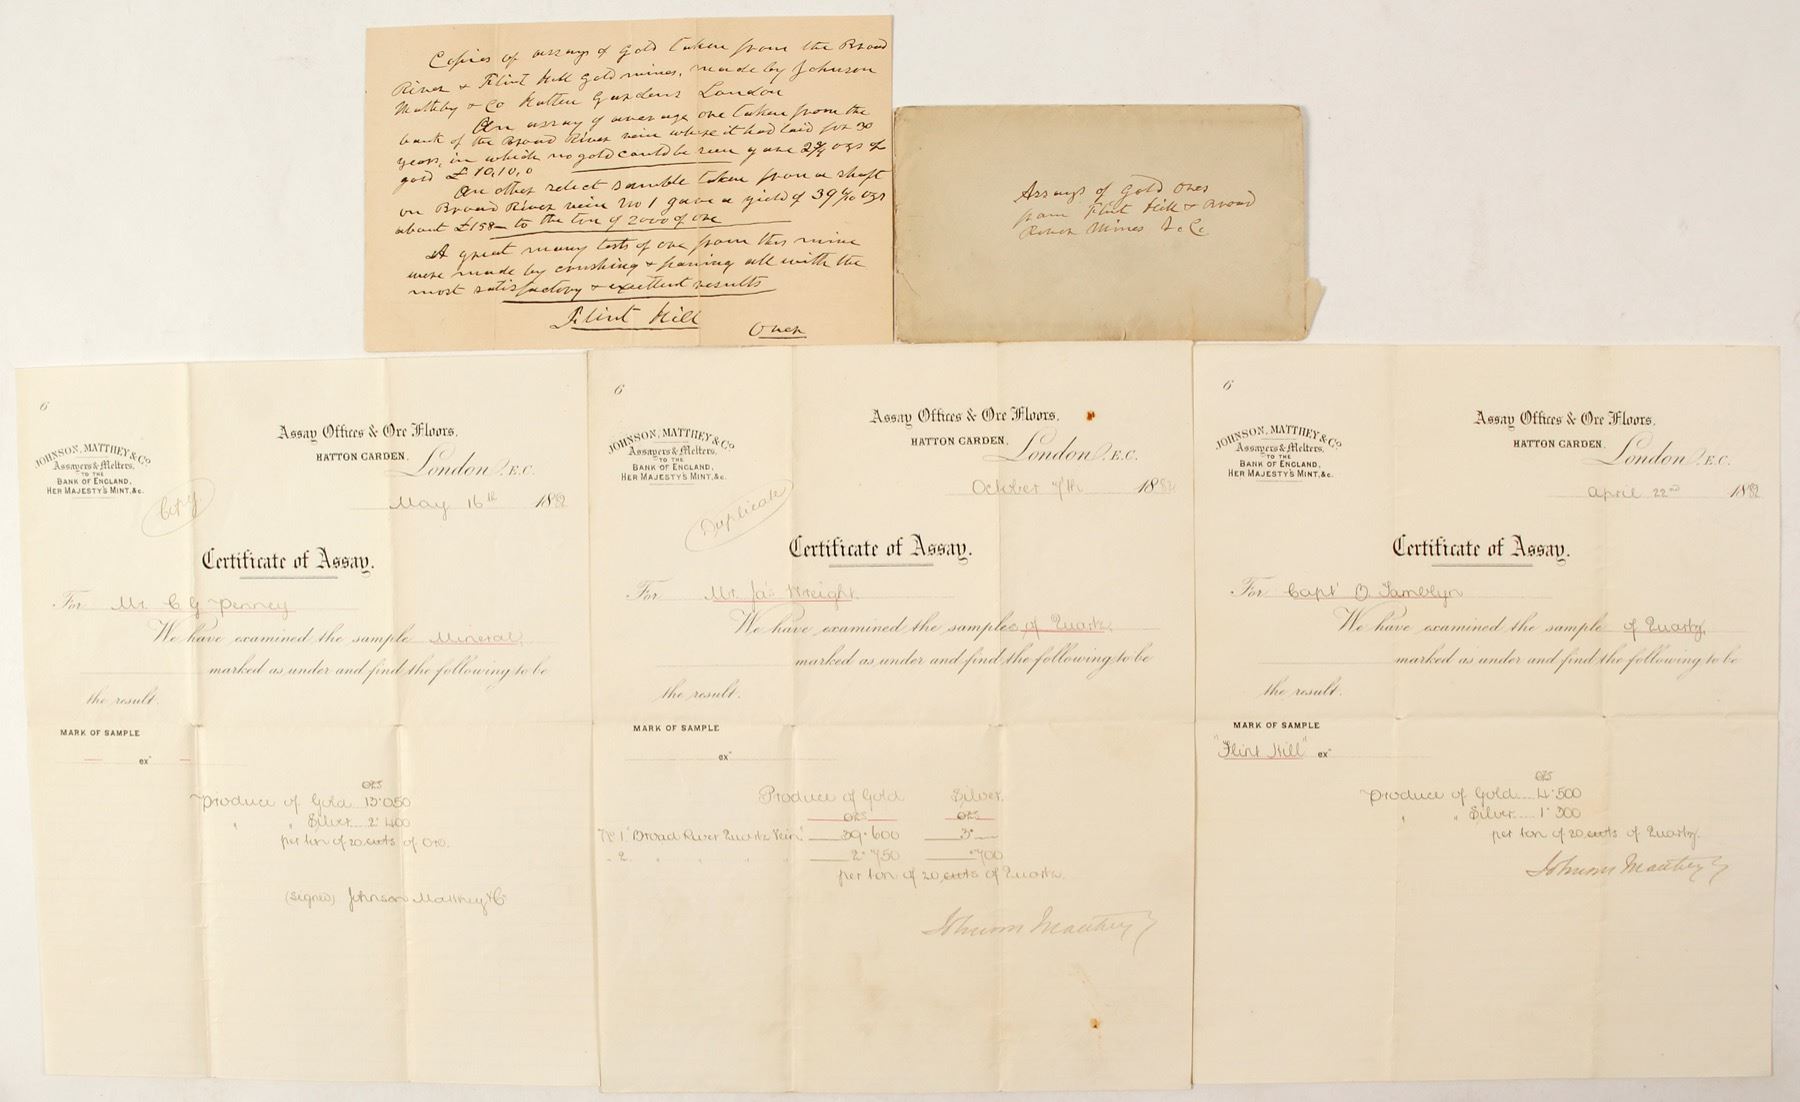 Copies of assays of Gold taken from the Broad
River & Flint Hill Gold mines, made by Johnson
Matthey & Co Hatton Gardens London
An assay of average ore taken from the
bank of the Broad River vein where it had laid for 30
years, in which no gold could be seen gave 2 3/4 ozs of
gold £10,10,0
An other select sample taken from a shaft
on Broad River vein No 1 gave a yield of 39 6/10 ozs
about £158— to the ton of 2000 of ore
A great many tests of ore from this mine
were made by crushing & panning all with the
most satisfactory & excellent results
Flint Hill
Over
Assays of Gold Ores
from Flint Hill & Broad
River Mines S. C.
6
JOHNSON, MATTHEY & Co
Assayers & Melters,
TO THE
BANK OF ENGLAND,
HER MAJESTY'S MINT, &c.
Assay Offices & Ore Floors.
HATTON GARDEN.
London, E.C.
May 16th 1882
Copy
Certificate of Assay.
For Mr. C G Penney
We have examined the sample Mineral
marked as under and find the following to be
the result.
MARK OF SAMPLE
— ex —
ozs
Produce of Gold 15.050
" " Silver 2.400
per ton of 20 cwts of Ore.
(signed) Johnson Matthey & Co
6
JOHNSON, MATTHEY & Co
Assayers & Melters,
TO THE
BANK OF ENGLAND,
HER MAJESTY'S MINT, &c.
Assay Offices & Ore Floors.
HATTON GARDEN.
London, E.C.
October 7th 188
Duplicate
Certificate of Assay.
For Mr. Jas Wreight
We have examined the samples of Quartz
marked as under and find the following to be
the result.
MARK OF SAMPLE
ex
Produce of Gold Silver.
ozs ozs
No 1 "Broad River Quartz Vein" 39.600 3.—
" 2 " " " " 2.750 .700
per ton of 20 cwts of Quartz.
Johnson Matthey
6
JOHNSON, MATTHEY & Co
Assayers & Melters,
TO THE
BANK OF ENGLAND,
HER MAJESTY'S MINT, &c.
Assay Offices & Ore Floors.
HATTON GARDEN.
London, E.C.
April 22nd 1882
Certificate of Assay.
For Capt O Tamblyn
We have examined the sample of Quartz
marked as under and find the following to be
the result.
MARK OF SAMPLE
"Flint Hill" ex
ozs
Produce of Gold..... 4.500
" " Silver..... 1.300
per ton of 20 cwts of Quartz.
Johnson Matthey